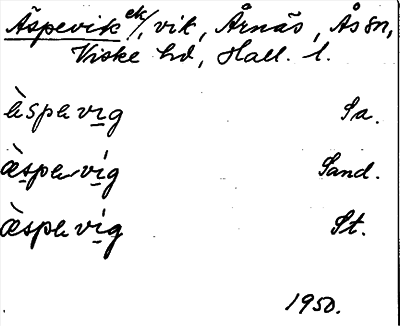 Äspevik ek/, vik, Årnäs, Ås sn,
Viske hd, Hall. l.
èspevig Sa.
æ̀spevíg Sand.
æ̀spevig St.
1950.